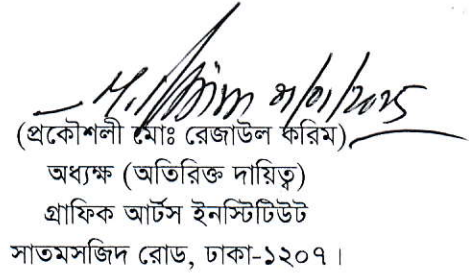 (প্রকৌশলী মোঃ রেজাউল করিম)
অধ্যক্ষ (অতিরিক্ত দায়িত্ব)
গ্রাফিক আর্টস ইনস্টিটিউট
সাতমসজিদ রোড, ঢাকা-১২০৭।